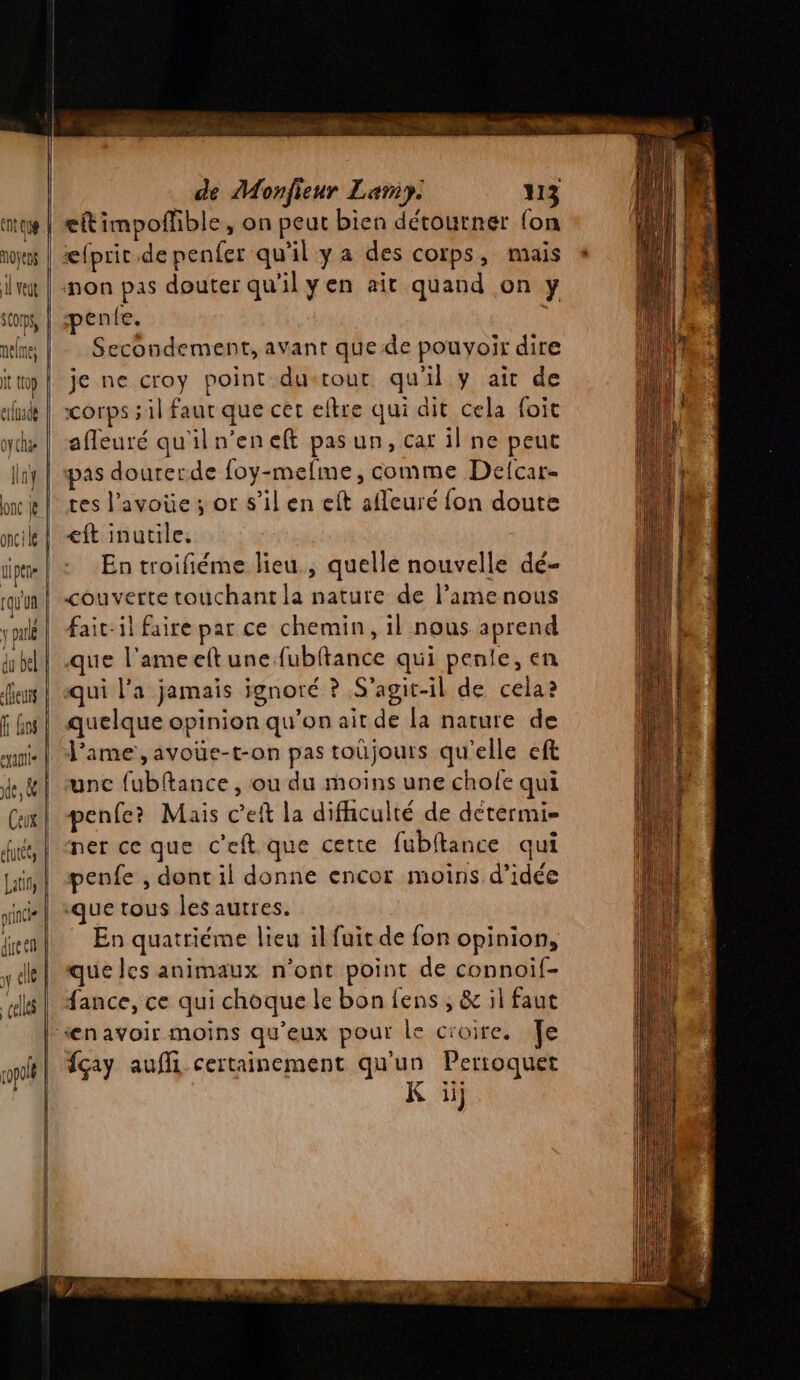 de Monſieur Lamy. 113
eſt impoſſible, on peut bien détourner ſon
eſprit de penſer qu'il y a des corps, mais
non pas douter qu'il y en ait quand on y
penſe.
Secondement, avant que de pouvoir dire
je ne croy point du tout qu'il y ait de
corps ; il faut que cet eſtre qui dit cela ſoit
aſſeuré qu'il n'en eſt pas un, car il ne peut
pas douter de ſoy-meſme, comme Deſcar-
tes l'avoüe ; or s'il en eſt aſſeuré ſon doute
eſt inutile.
En troiſiéme lieu, quelle nouvelle dé-
couverte touchant la nature de l'ame nous
fait-il faire par ce chemin, il nous aprend
que l'ame eſt une ſubſtance qui penſe, en
qui l'a jamais ignoré ? S'agit-il de cela?
quelque opinion qu'on ait de la nature de
l'ame, avoüe-t-on pas toûjours qu'elle eſt
une ſubſtance, ou du moins une choſe qui
penſe? Mais c'eſt la difficulté de détermi-
ner ce que c'eſt que cette ſubſtance qui
penſe, dont il donne encor moins d'idée
que tous les autres.
En quatriéme lieu il ſuit de ſon opinion,
que les animaux n'ont point de connoiſ-
ſance, ce qui choque le bon ſens, & il faut
en avoir moins qu'eux pour le croire. Je
ſçay auſſi certainement qu'un Perroquet
K iij